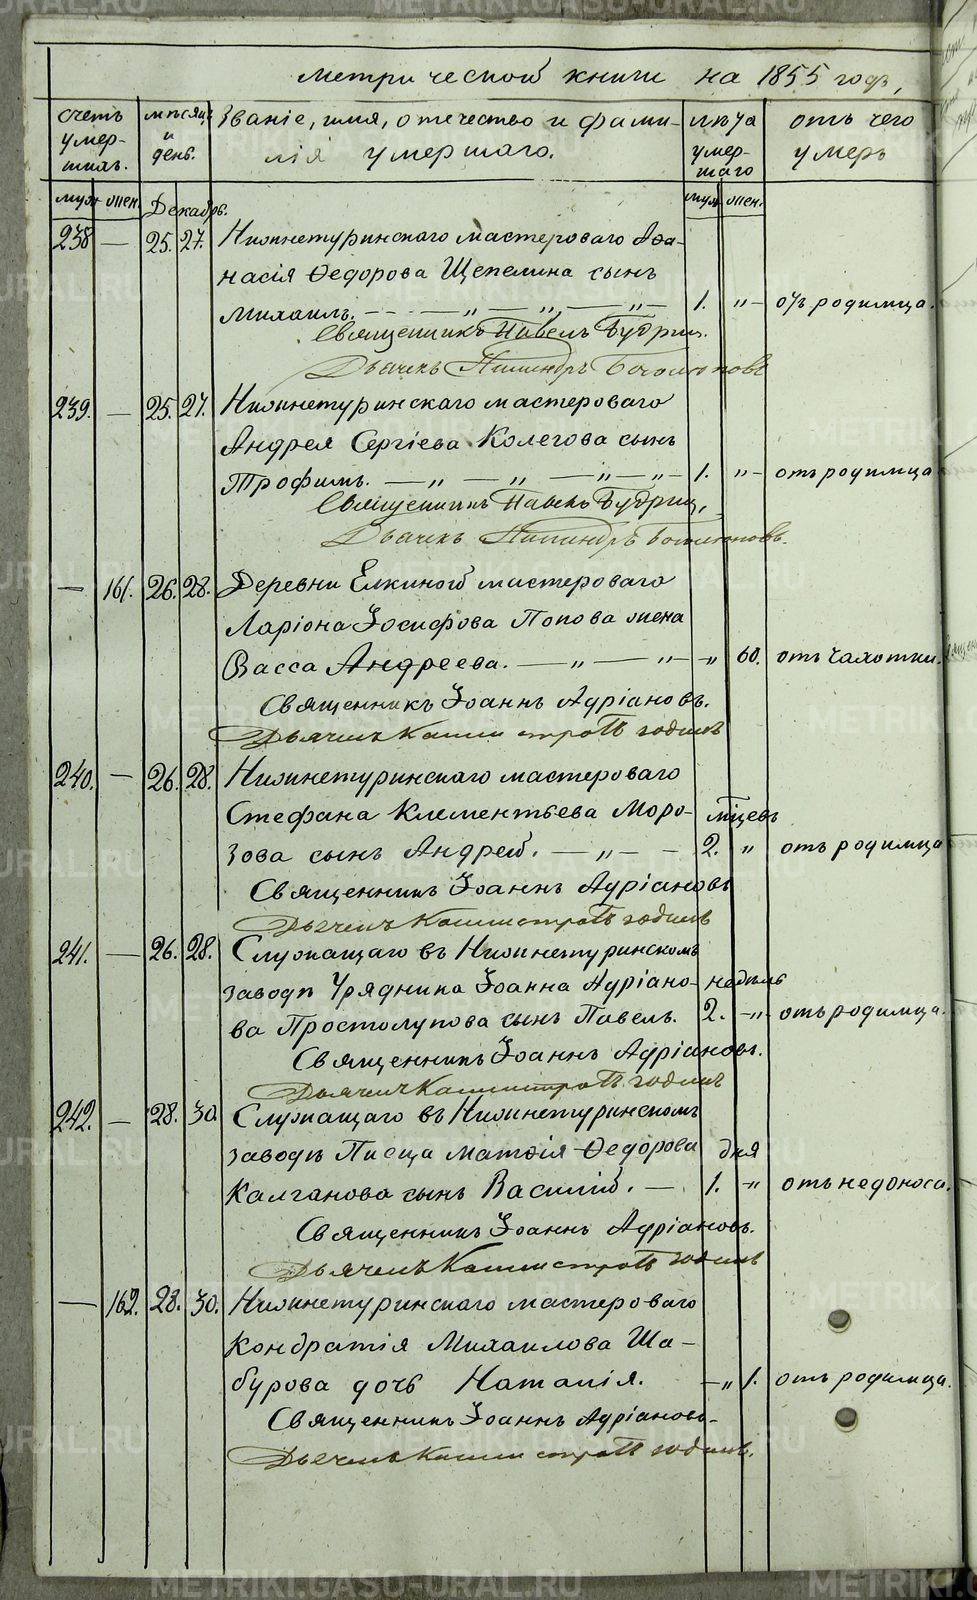 Метрической книги на 1855 годъ,
счетъ умершихъ. мѣсяцъ и день. Званіе, имя, отечество и фамилія умершаго. лѣта умершаго отъ чего умеръ
муж. жен. Декабрь. муж. жен.
238 — 25. 27. Нижнетуринскаго мастероваго Афа-
насія Ѳедорова Щепелина сынъ
Михаилъ. — „ — „ — „ — 1. „ — отъ родимца.
Священникъ Павелъ
Дьячекъ
239. — 25. 27. Нижнетуринскаго мастероваго
Андрея Сергіева Колегова сынъ
Трофимъ. — „ — „ — „ — „ — 1. „ — отъ родимца
Священникъ Павелъ
Дьячекъ
— 161. 26. 28. Деревни Елкиной мастероваго
Ларіона Іосифова Попова жена
Васса Андреева. — „ — „ — „ 60. отъ чахотки.
Священникъ Іоаннъ Адріановъ.
Дьячекъ
240. — 26. 28. Нижнетуринскаго мастероваго
Стефана Клементьева Моро- мѣсяцевъ
зова сынъ Андрей. — „ — 2. „ отъ родимца
Священникъ Іоаннъ Адріановъ
Дьячекъ
241. — 26. 28. Служащаго въ Нижнетуринскомъ
заводѣ Урядника Іоанна Адріано- недѣль
ва Простолупова сынъ Павелъ. 2. — „ отъ родимца.
Священникъ Іоаннъ Адріановъ.
Дьячекъ
242. — 28. 30. Служащаго въ Нижнетуринскомъ
заводѣ Писца Матѳія Ѳедорова дня
Калганова сынъ Василій. — 1. „ отъ недоноса.
Священникъ Іоаннъ Адріановъ.
Дьячекъ
— 162. 28. 30. Нижнетуринскаго мастероваго
Кондратія Михаилова Ша-
бурова дочь Наталія. — „ 1. отъ родимца.
Священникъ Іоаннъ Адріановъ.
Дьячекъ
METRIKI.GASO-URAL.RU